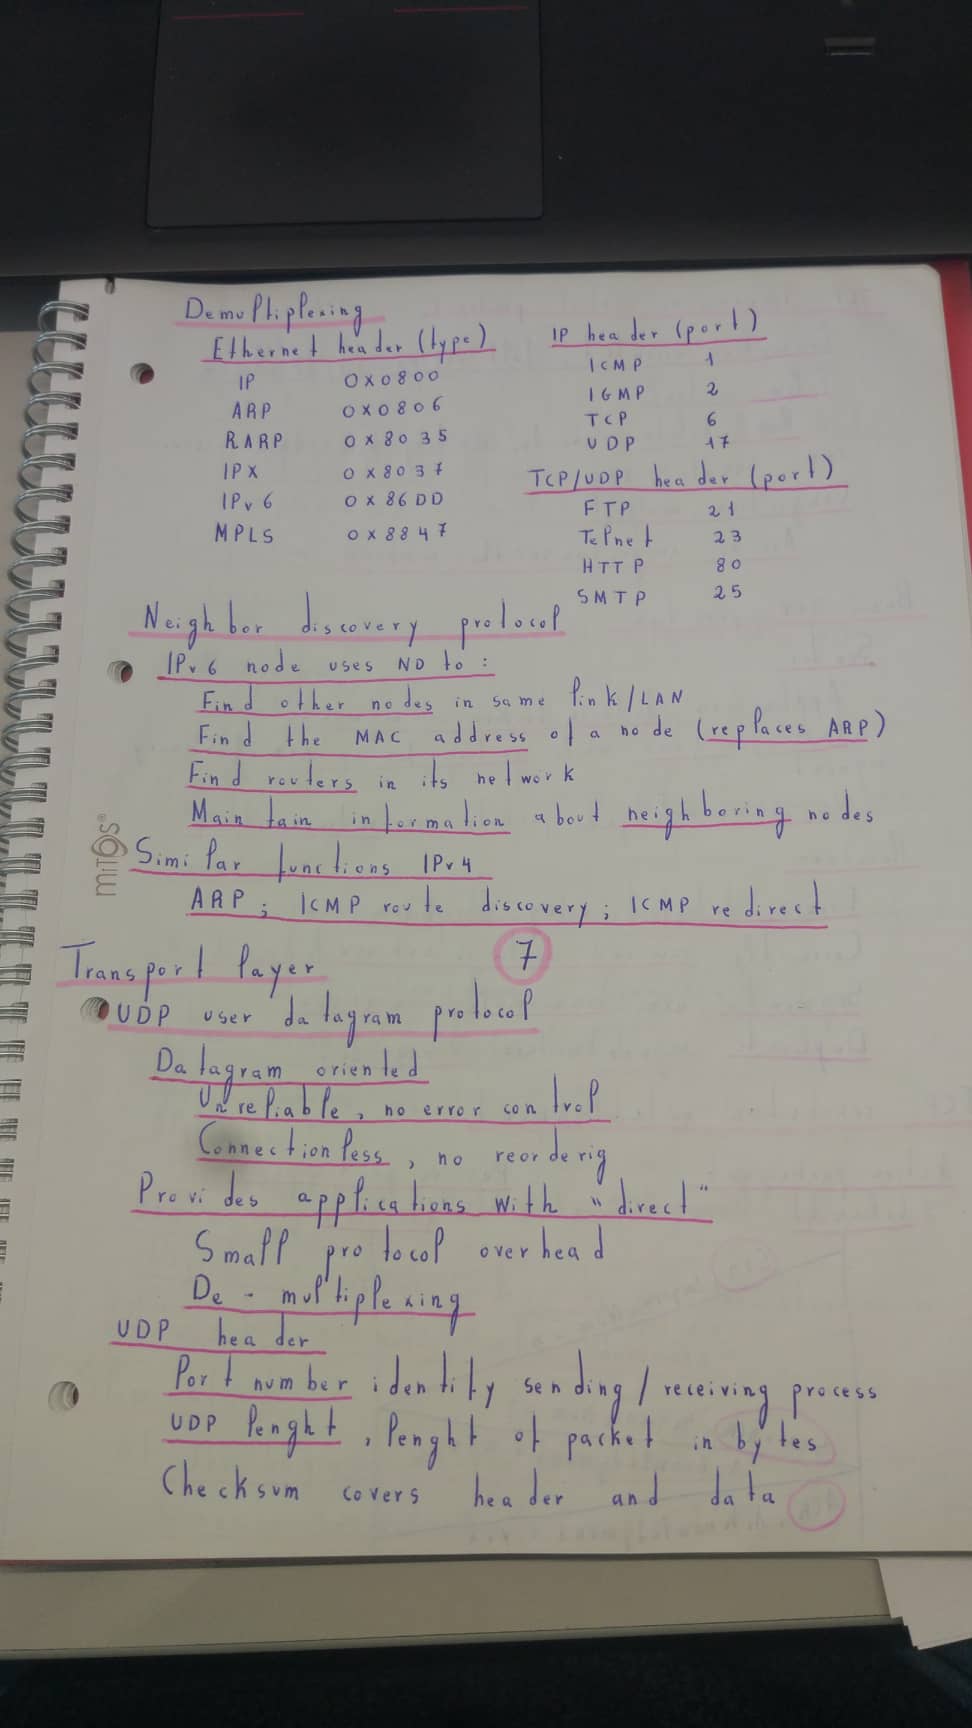 Demultiplexing
Ethernet header (type)
IP 0x0800
ARP 0x0806
RARP 0x8035
IPX 0x8037
IPv6 0x86DD
MPLS 0x8847
IP header (port)
ICMP 1
IGMP 2
TCP 6
UDP 17
TCP/UDP header (port)
FTP 21
Telnet 23
HTTP 80
SMTP 25
Neighbor discovery protocol
IPv6 node uses ND to:
Find other nodes in same link/LAN
Find the MAC address of a node (replaces ARP)
Find routers in its network
Maintain information about neighboring nodes
Similar functions IPv4
ARP; ICMP route discovery; ICMP redirect
MITOS®
7
Transport layer
UDP user datagram protocol
Datagram oriented
Unreliable, no error control
Connectionless, no reorderig
Provides applications with "direct"
Small protocol overhead
De-multiplexing
UDP header
Port number identify sending/receiving process
UDP lenght, lenght of packet in bytes
Checksum covers header and data